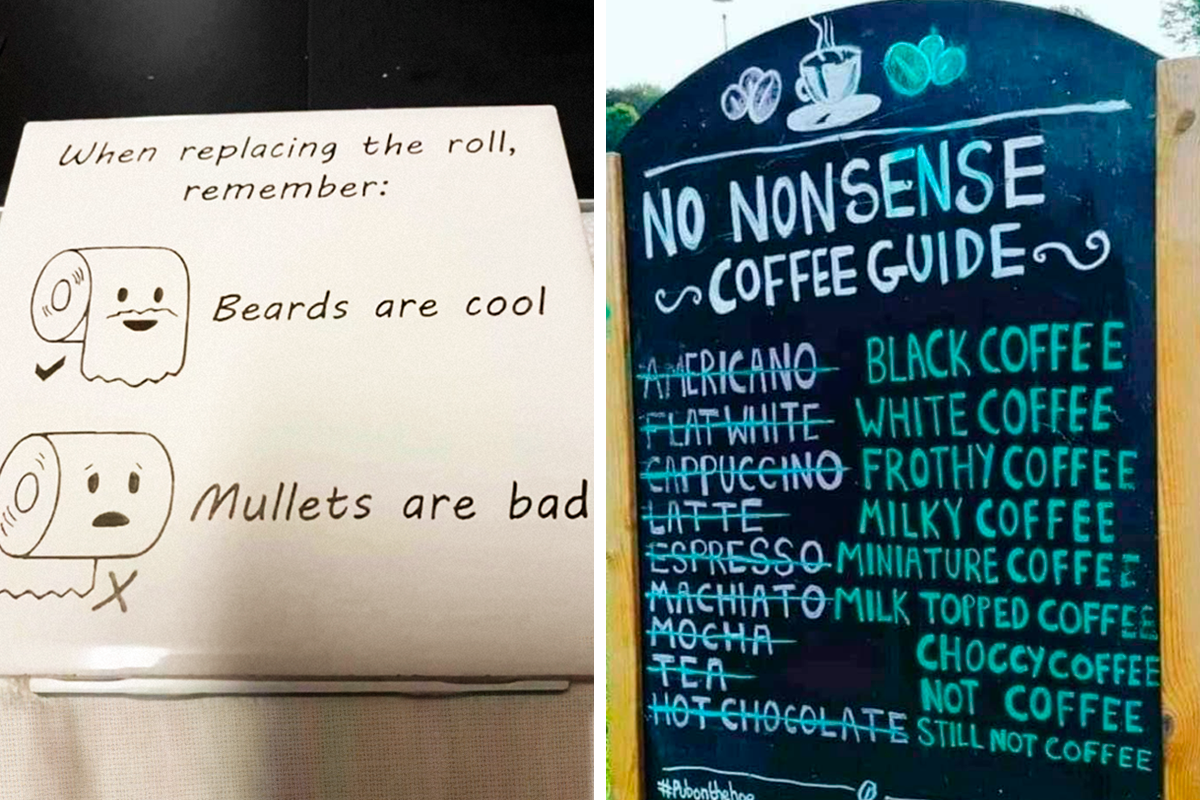 When replacing the roll,
remember:
Beards are cool
Mullets are bad
NO NONSENSE
COFFEE GUIDE
AMERICANO BLACK COFFEE
FLAT WHITE WHITE COFFEE
CAPPUCCINO FROTHY COFFEE
LATTE MILKY COFFEE
ESPRESSO MINIATURE COFFEE
MACHIATO MILK TOPPED COFFEE
MOCHA CHOCCY COFFEE
TEA NOT COFFEE
HOT CHOCOLATE STILL NOT COFFEE